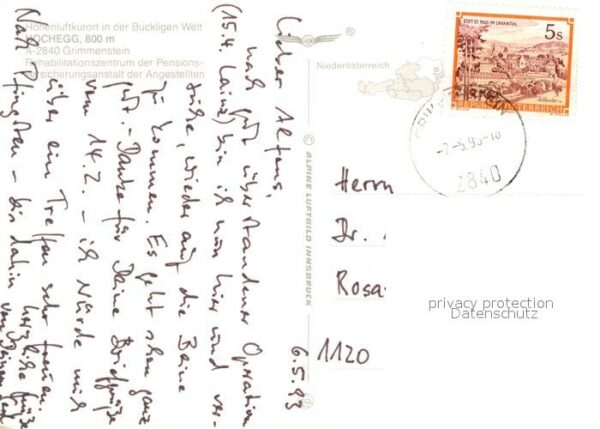 Höhenluftkurort in der Buckligen Welt
HOCHEGG, 800 m
A-2840 Grimmenstein
Rehabilitationszentrum der Pensions-
versicherungsanstalt der Angestellten
Niederösterreich
®
© ALPINE LUFTBILD INNSBRUCK
STIFT ST. PAUL IM LAVANTTAL
5s
REPUBLIK ÖSTERREICH
2840
6.5.93
Lieber Alfons,
nach gut überstandener Operation
(15.4. Lainz) bin ich nun hier und ver-
suche, wieder auf die Beine
zu kommen. Es geht schon ganz
gut. - Danke für Deine Briefgrüße
vom 14.2. - ich würde mich
über ein Treffen sehr freuen.
Nach Pfingsten - bis dahin herzliche Grüße
von Deinem
Herrn
Dr.
Rosa
1120
privacy protection
Datenschutz